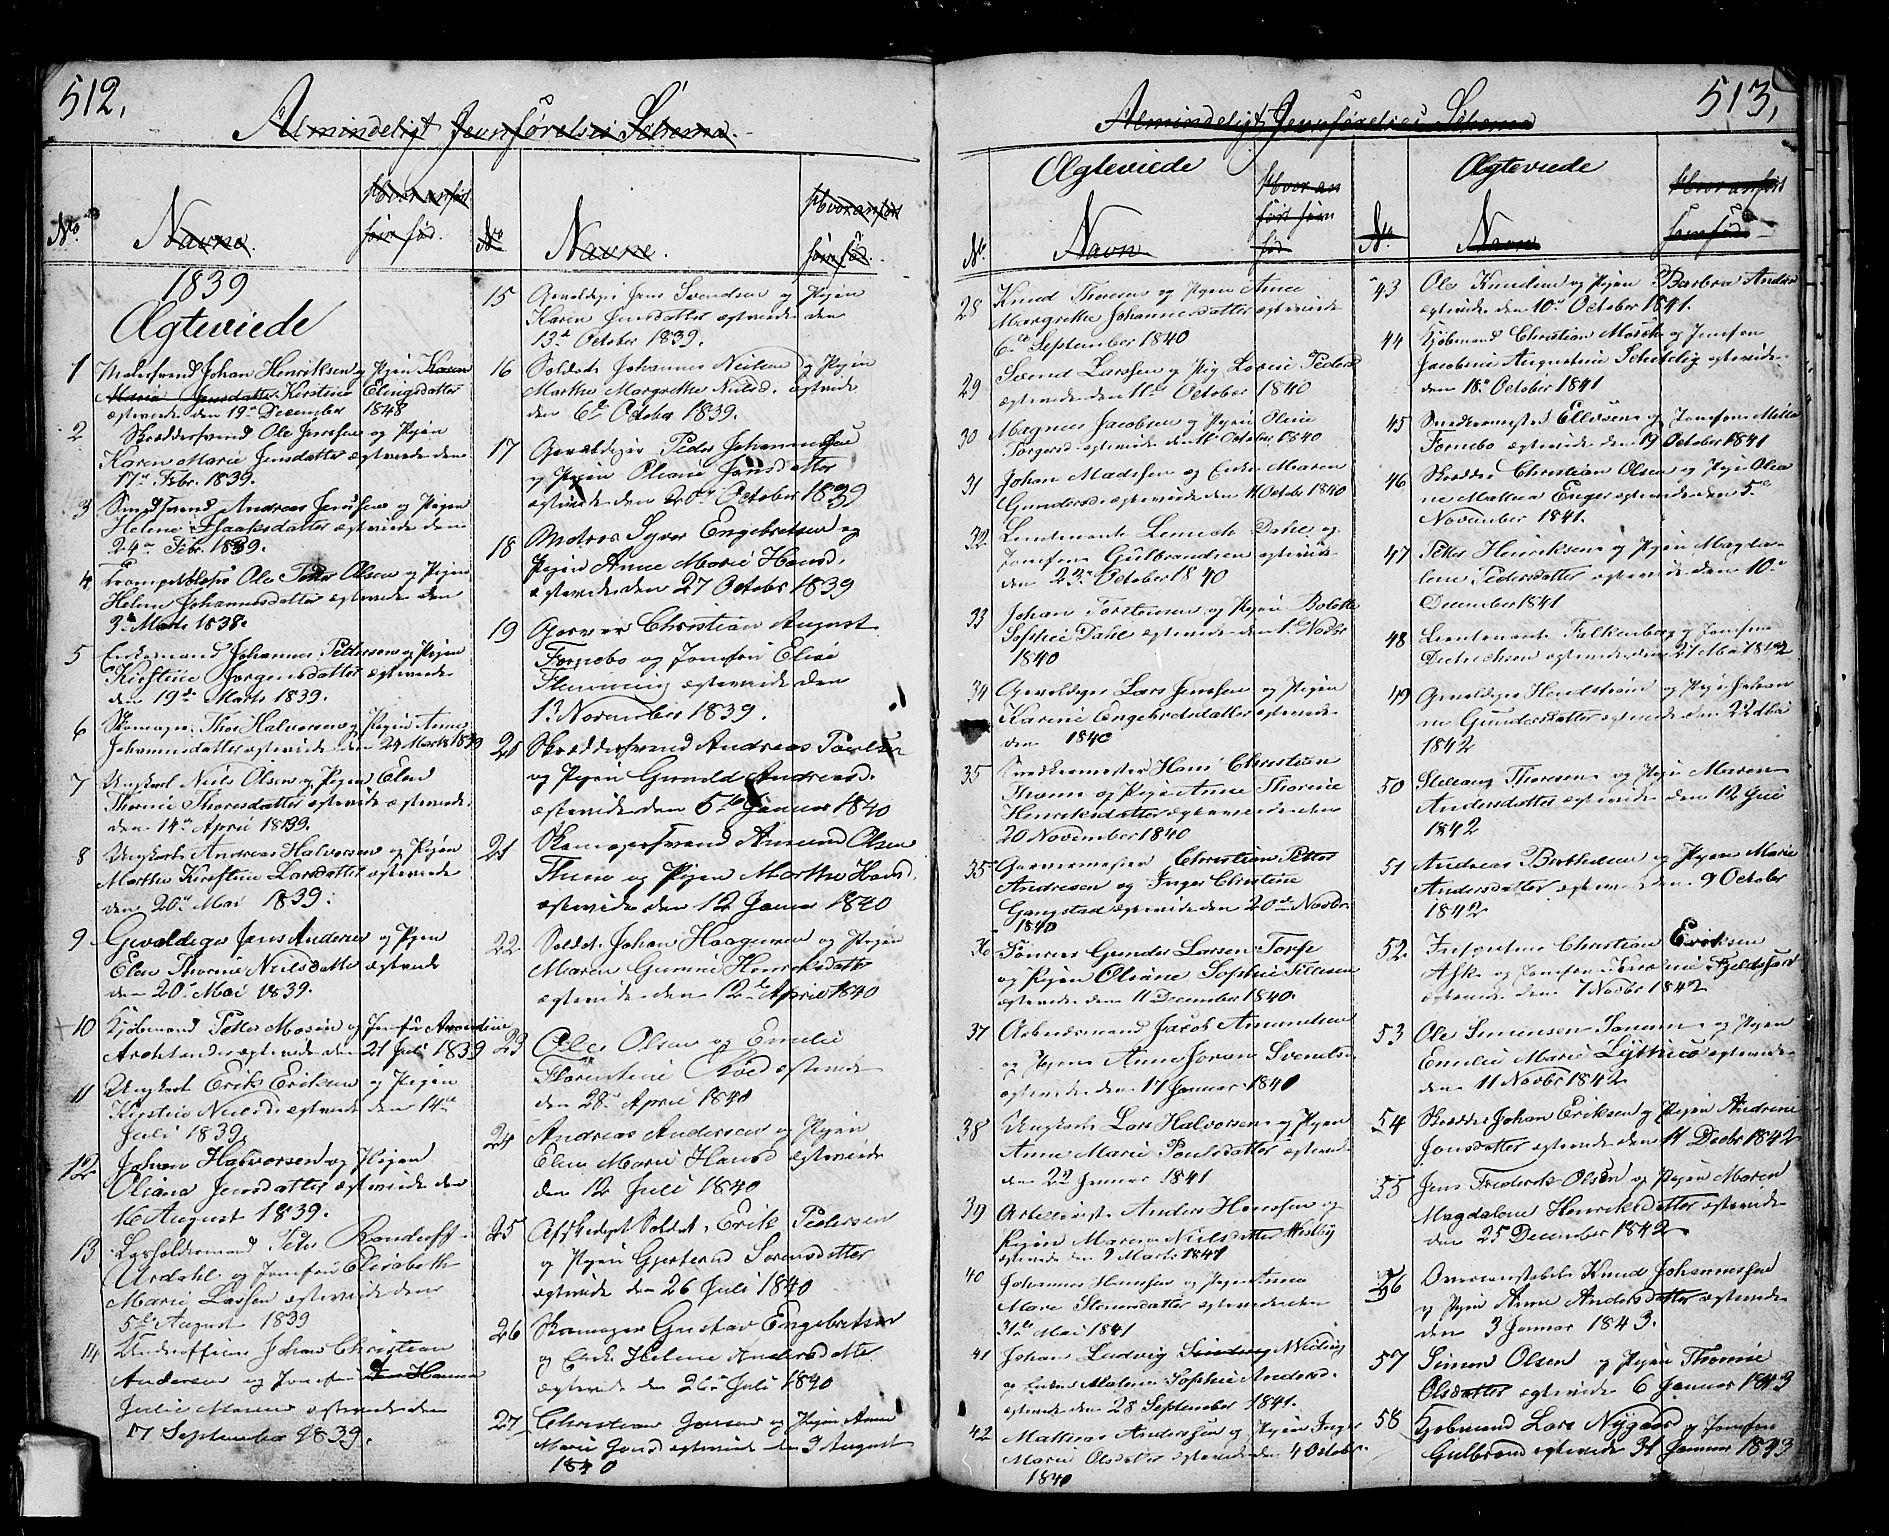 512.
Almindeligt Jevnførelses Schema.
No Navne. Hvor anført som fød.
1839
Ægteviede
1 Malersvend Johan Henriksen og Pigen Karen
Marie Jensdatter Kirstine Elingsdatter
ægteviede den 19de December 1848
2 Skræddersvend Ole Jensen og Pigen
Karen Marie Jensdatter ægteviede den
17de Febr. 1839.
3 Smedsvend Andreas Jensen og Pigen
Helene Isaaksdatter ægteviede den
24de Febr. 1839.
4 Trompetblæser Ole Peter Olsen og Pigen
Helene Johannesdatter ægteviede den
3de Marts 1838.
5 Enkemand Johannes Pettersen og Pigen
Kirstine Jørgensdatter ægteviede
den 19de Marts 1839.
6 Skomager Thor Halvorsen og Pigen Anne
Johannesdatter ægteviede den 24 Marts 1839
7 Ungkarl Niels Olsen og Pigen Elen
Thorine Thoresdatter ægteviede ægteviede
den 14de April 1839.
8 Ungkarl Andreas Halvorsen og Pigen
Marthe Kirstine Larsdatter ægteviede
den 20de Mai 1839.
9 Gevaldiger Jens Andersen og Pigen
Elen Thorine Nielsdatter ægteviede
den 20de Mai 1839.
10 Kjøbmand Petter Mosin og Jomfru Amandine
ægteviede den 21 Juli 1839
11 Ungkarl Erik Eriksen og Pigen
Kirstine Nielsd. ægteviede den 14de
Juli 1839.
12 Johan Halvorsen og Pigen
Oliana Jensdatter ægteviede den
16 August 1839.
13 Peter Randulff
Urdahl og Jomfru Elisabeth
Marie Lassen ægteviede den
5de August 1839
14 Underofficier Johan Christian
Andersen og Jomfru Hanna
Julie ægteviede den
17 September 1839.
No Navne. Hvor anført som fød.
15 Gevaldiger Jens Svendsen og Pigen
Karen Jensdatter ægteviede den
13de October 1839.
16 Soldat Johannes Nielsen og Pigen
Marthe Margrethe Nielsd. ægteviede
den 6de Octobr 1839.
17 Gevaldiger Peder Johannesen
og Pigen Oliane Jansdatter
ægteviede den 20de October 1839
18 Andreas Syver Engebretsen og
Pigen Anne Marie Hansd.
ægteviede den 27 Octobr 1839
19 Garver Christian August
Fornebo og Jomfru Elise
Flemming ægteviede den
13 November 1839.
20 Skræddersvend Andreas
og Pigen Gunild Andreasd.
ægteviede den 5te Januar 1840
21 Skomagersvend Amund Olsen
og Pigen Marthe Hansd.
ægteviede den 12 Januar 1840
22 Soldat Johan Haagensen og Pigen
Maren Gurine Henriksdatter
ægteviede den 12de April 1840
23 Olsen og Emilie
Florentine ægteviede
den 28de April 1840
24 Andreas Andersen og Pigen
Elen Marie Hansd ægteviede
den 12 Juli 1840
25 Afskediget Soldat Erik Pedersen
og Pigen Gjertrud Sørensdatter
ægteviede den 26 Juli 1840
26 Skomager Gustav Engebretsen
og Enke Helene Andersdatter
ægteviede den 26de Juli 1840
27 Christian Jensen og Pigen Anne
Marie Jonsd ægteviede den 9 August
1840
513.
Almindeligt Jevnførelses Schema
No. Ægteviede Navn Hvor anført som fød
28 Knud Thoresen og Pigen Anne
Margrethe Johannesdatter ægteviede
6te September 1840
29 Svend Larssen og Pig Lovise Pedersd
ægteviede den 11te October 1840
30 Magnus Jacobsen og Pigen Oline
Torgersd ægteviede den 11te October 1840
31 Johan Madssen og Enke Maren
Gundersd ægteviede den 11 Octobr 1840
32 Lieutenant Lemich Dahl og
Jomfru Gulbrandsen ægteviede
den 23de October 1840
33 Johan Torstensen og Pigen Bolette
Sophie Dahl ægteviede den 1te Novbr
1840
34 Gevaldiger Lars Jenssen og Pigen
Karine Engebretsdatter ægteviede
den 1840
35 Snedkermester Hans Christian
Thom og Pigen Anne Thorine
Henriksdatter ægteviede den
20 November 1840
35 Garvermester Christian Petter
Andresen og Inger Christine
Gangstad ægteviede den 20de Novbr
1840
36 Gunder Larsen Torp
og Pigen Oliane Sophie
ægteviede den 11 December 1840.
37 Arbeidsmand Jacob Amundsen
og Pigen Anne Joran Svendsd.
ægteviede den 17 Januar 1840
38 Ungkarl Lars Halvorsen og Pigen
Anne Marie Poulsdatter ægteviede
den 22 Januar 1841
39 Artillerist Anders Hansen og
Pigen Maren Nielsdatter Hesby
ægteviede den 9 Marts 1841
40 Johannes Hansen og Pigen Anne
Marie ægteviede den
31te Mai 1841
41 Johan Ludvig
og Enke Malene Sophie Andersd.
ægteviede den 28 September 1841.
42 Mathias Andersen og Pigen Inger
Marie Olsdatter ægteviede den 4 Octobr.
1840
No. Ægteviede Navn Hvor anført som fød
43 Ole Knudsen og Pigen Barbra Andre
ægteviede den 10de October 1841.
44 Kjøbmand Christian Mørch og Jomfru
Jacobine Augustine ægteviede
den 18de October 1841
45 Snedkermester Ellefsen og Jomfru
Fornebo ægteviede den 19 October 1841
46 Skrædder Christian Olsen og Pige Olea
ne Mathea Enger ægteviede den 5te
November 1841.
47 Peter Henriksen og Pigen Magda
lene Pedersdatter ægteviede den 10de
December 1841
48 Lieutenant Falkenberg og Jomfru
Diedrichsen ægteviede den 21 Mai 1842
49 Gevaldiger og Pige Johan
ne Gundersdatter ægteviede den 22 Mai
1842
50 Thoresen og Pige Maren
Andersdatter ægteviede den 12 Juni
1842
51 Andreas og Pigen Marie
Andersdatter ægteviede den 9 October
1842
52 Christian Eriksen
Ask og Jomfru
ægteviede den 7 Novbr 1842
53 Ole Simensen og Pigen
Emilie Marie ægteviede
den 11 Novbr 1842
54 Skrædder Johan Eriksen og Pigen Andrine
Jonsdatter ægteviede den 11 Decbr 1842
55 Jens Frederik Olsen og Pigen Maren
Magdalene Henriksdatter ægteviede
den 25 December 1842
56 Overconstabel Knud Johannessen
og Pigen Anne Andersdatter ægteviede
den 3 Januar 1843.
57 Simon Olsen og Pigen Thomine
Olsdatter ægteviede 6 Januar 1843
58 Kjøbmand Lars Nygaard og Jomfru
Gulbrand ægteviede 31 Januar 1843